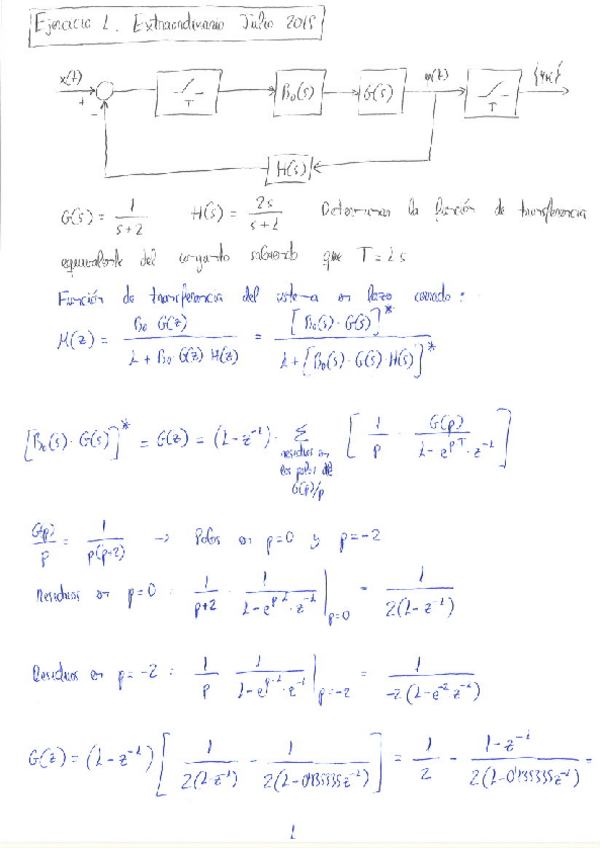 Ejercicio 1. Extraordinario Julio 2015
x(t) + - T B₀(s) G(s) y(t) T {yₖ}
H(s)
G(s) = 1/(s+2) H(s) = 2s/(s+1) Determinar la función de transferencia
equivalente del conjunto sabiendo que T = 1 s
Función de transferencia del sistema en lazo cerrado:
M(z) = B₀·G(z) / (1 + B₀·G(z)·H(z)) = [B₀(s)·G(s)]* / (1 + [B₀(s)·G(s)·H(s)]*)
[B₀(s)·G(s)]* = G(z) = (1 - z⁻¹) · Σ residuos en los polos de G(p)/p [1/p · G(p)/(1 - e^(pT)·z⁻¹)]
G(p)/p = 1/(p(p+2)) → Polos en p=0 y p=-2
Residuos en p=0 : 1/(p+2) · 1/(1 - e^(p·1)·z⁻¹) |p=0 = 1/(2(1 - z⁻¹))
Residuos en p=-2 : 1/p · 1/(1 - e^(p·1)·z⁻¹) |p=-2 = 1/(-2(1 - e⁻² z⁻¹))
G(z) = (1 - z⁻¹) [1/(2(1-z⁻¹)) - 1/(2(1-0'135335z⁻¹))] = 1/2 - (1-z⁻¹)/(2(1-0'135335z⁻¹)) =
1